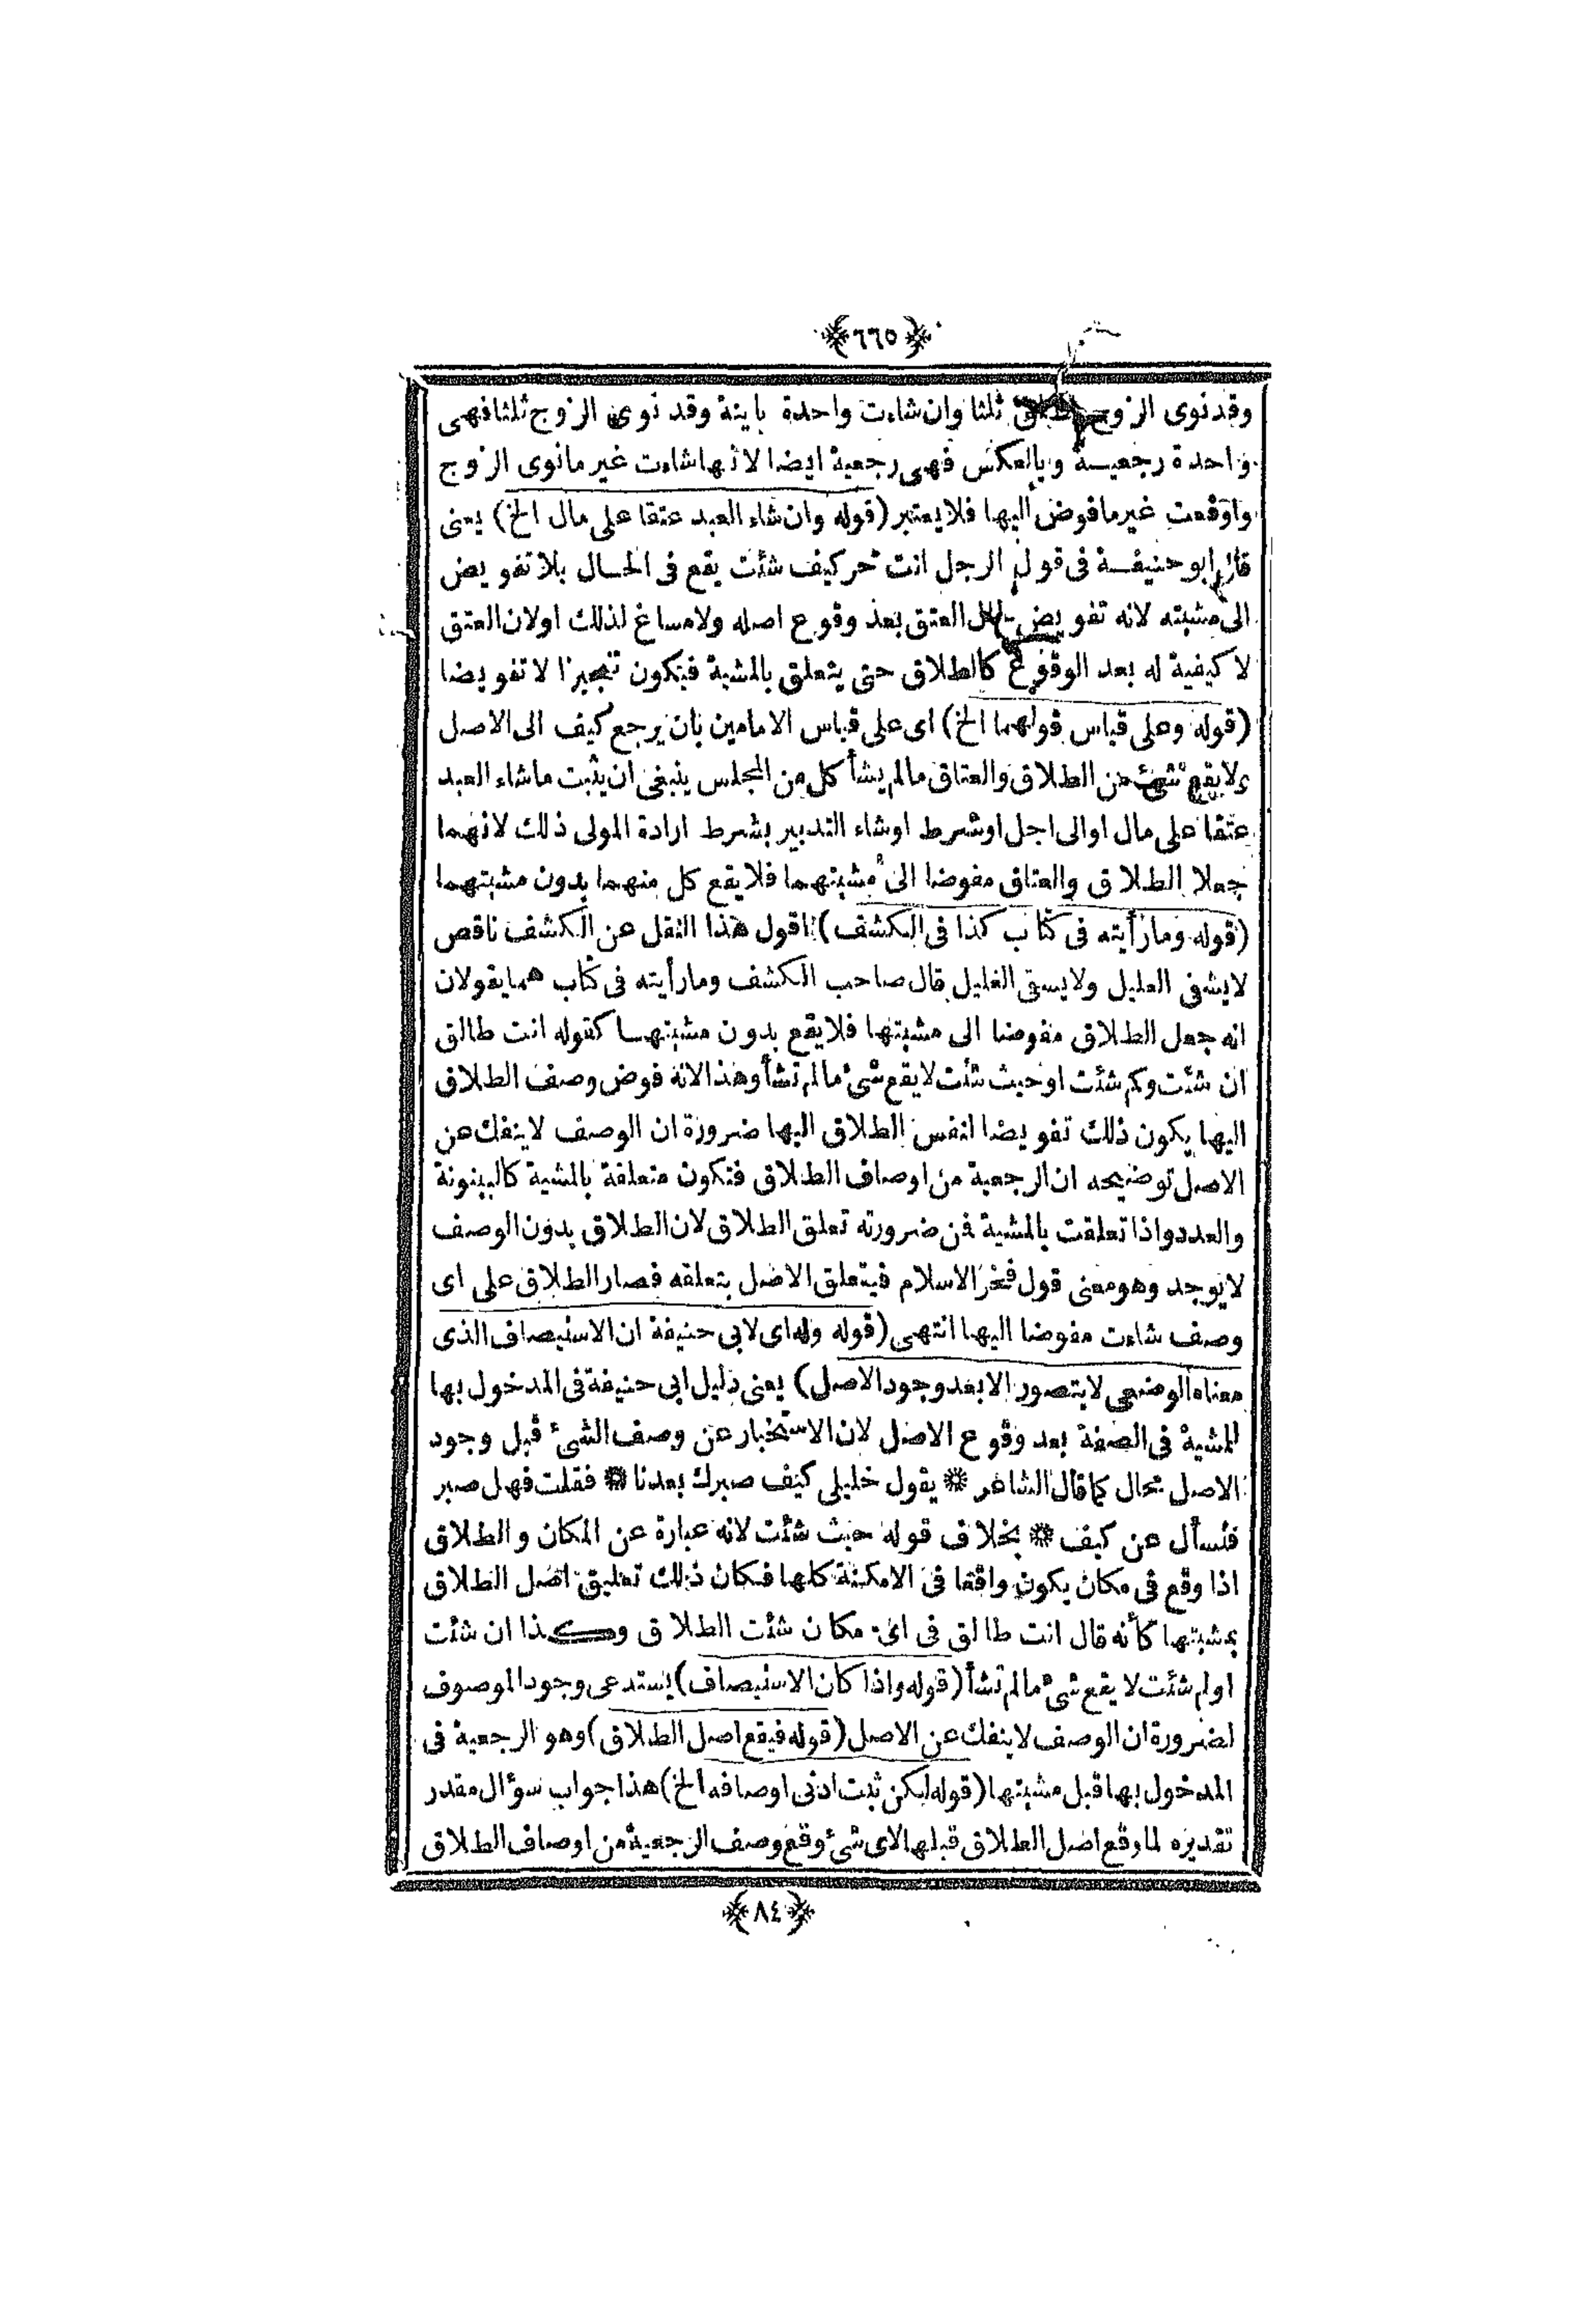 ﴿٦٦٥﴾
وقد نوى الزوج ثلثا وان شاءت واحدة باينة وقد نوى الزوج ثلثا فهى
واحدة رجعيسة وبالعكس فهى رجعية ايضا لانها شاءت غير مانوى الزوج
واوقعت غير مافوض اليها فلا يعتبر (قوله وان شاء العبد عتقا على مال الخ) يعنى
قال ابو حنيفة فى قول الرجل انت حر كيف شئت يقع فى الحال بلا تفويض
الى مشيته لانه تفويض العتق بعد وقوع اصله ولا مساغ لذلك اولان العتق
لا كيفية له بعد الوقوع كالطلاق حتى يتعلق بالمشية فيكون تنجيزا لا تفويضا
(قوله وعلى قياس قولهما الخ) اى على قياس الامامين بان يرجع كيف الى الاصل
ولا يقع شئ من الطلاق والعتاق مالم يشأ كل من المجلس ينبغى ان يثبت ماشاء العبد
عتقا على مال اوالى اجل اوشرط اوشاء التدبير بشرط ارادة المولى ذلك لانهما
جعلا الطلاق والعتاق مفوضا الى مشيتهما فلا يقع كل منهما بدون مشيتهما
(قوله ومارأيته فى كتاب كذا فى الكشف) اقول هذا النقل عن الكشف ناقص
لايشفى العليل ولايسقى الغليل قال صاحب الكشف ومارأيته فى كتاب هما يقولان
انه جعل الطلاق مفوضا الى مشيتها فلا يقع بدون مشيتهسا كقوله انت طالق
ان شئت وكم شئت اوحيث شئت لايقع شئ مالم تشأ وهذا لانه فوض وصف الطلاق
اليها يكون ذلك تفويضا لنفس الطلاق اليها ضرورة ان الوصف لاينفك عن
الاصل توضيحه ان الرجعية من اوصاف الطلاق فتكون متعلقة بالمشية كالبينونة
والعدد واذا تعلقت بالمشية فمن ضرورته تعلق الطلاق لان الطلاق بدون الوصف
لايوجد وهو معنى قول فخر الاسلام فيتعلق الاصل بتعلقه فصار الطلاق على اى
وصف شاءت مفوضا اليها انتهى (قوله وله اى لابى حنيفة ان الاستيصاف الذى
معناه الوضعى لايتصور الا بعد وجود الاصل) يعنى دليل ابى حنيفة فى المدخول بها
المشية فى الصفة بعد وقوع الاصل لان الاستخبار عن وصف الشئ قبل وجود
الاصل محال كما قال الشاعر ❋ يقول خليلى كيف صبرك بعدنا ❋ فقلت فهل صبر
فنسأل عن كيف ❋ بخلاف قوله حيث شئت لانه عبارة عن المكان والطلاق
اذا وقع فى مكان يكون واقعا فى الامكنة كلها فكان ذلك تعليق اصل الطلاق
بمشيتها كأنه قال انت طالق فى اى مكان شئت الطلاق وكذا ان شئت
اولم شئت لا يقع شئ مالم تشأ (قوله واذا كان الاستيصاف) يستدعى وجود الموصوف
لضرورة ان الوصف لاينفك عن الاصل (قوله فيقع اصل الطلاق) وهو الرجعية فى
المدخول بها قبل مشيتها (قوله لكن ثبت ادنى اوصافه الخ) هذا جواب سؤال مقدر
تقديره لما وقع اصل الطلاق قبلها لاى شئ وقع وصف الرجعية من اوصاف الطلاق
﴿٨٤﴾